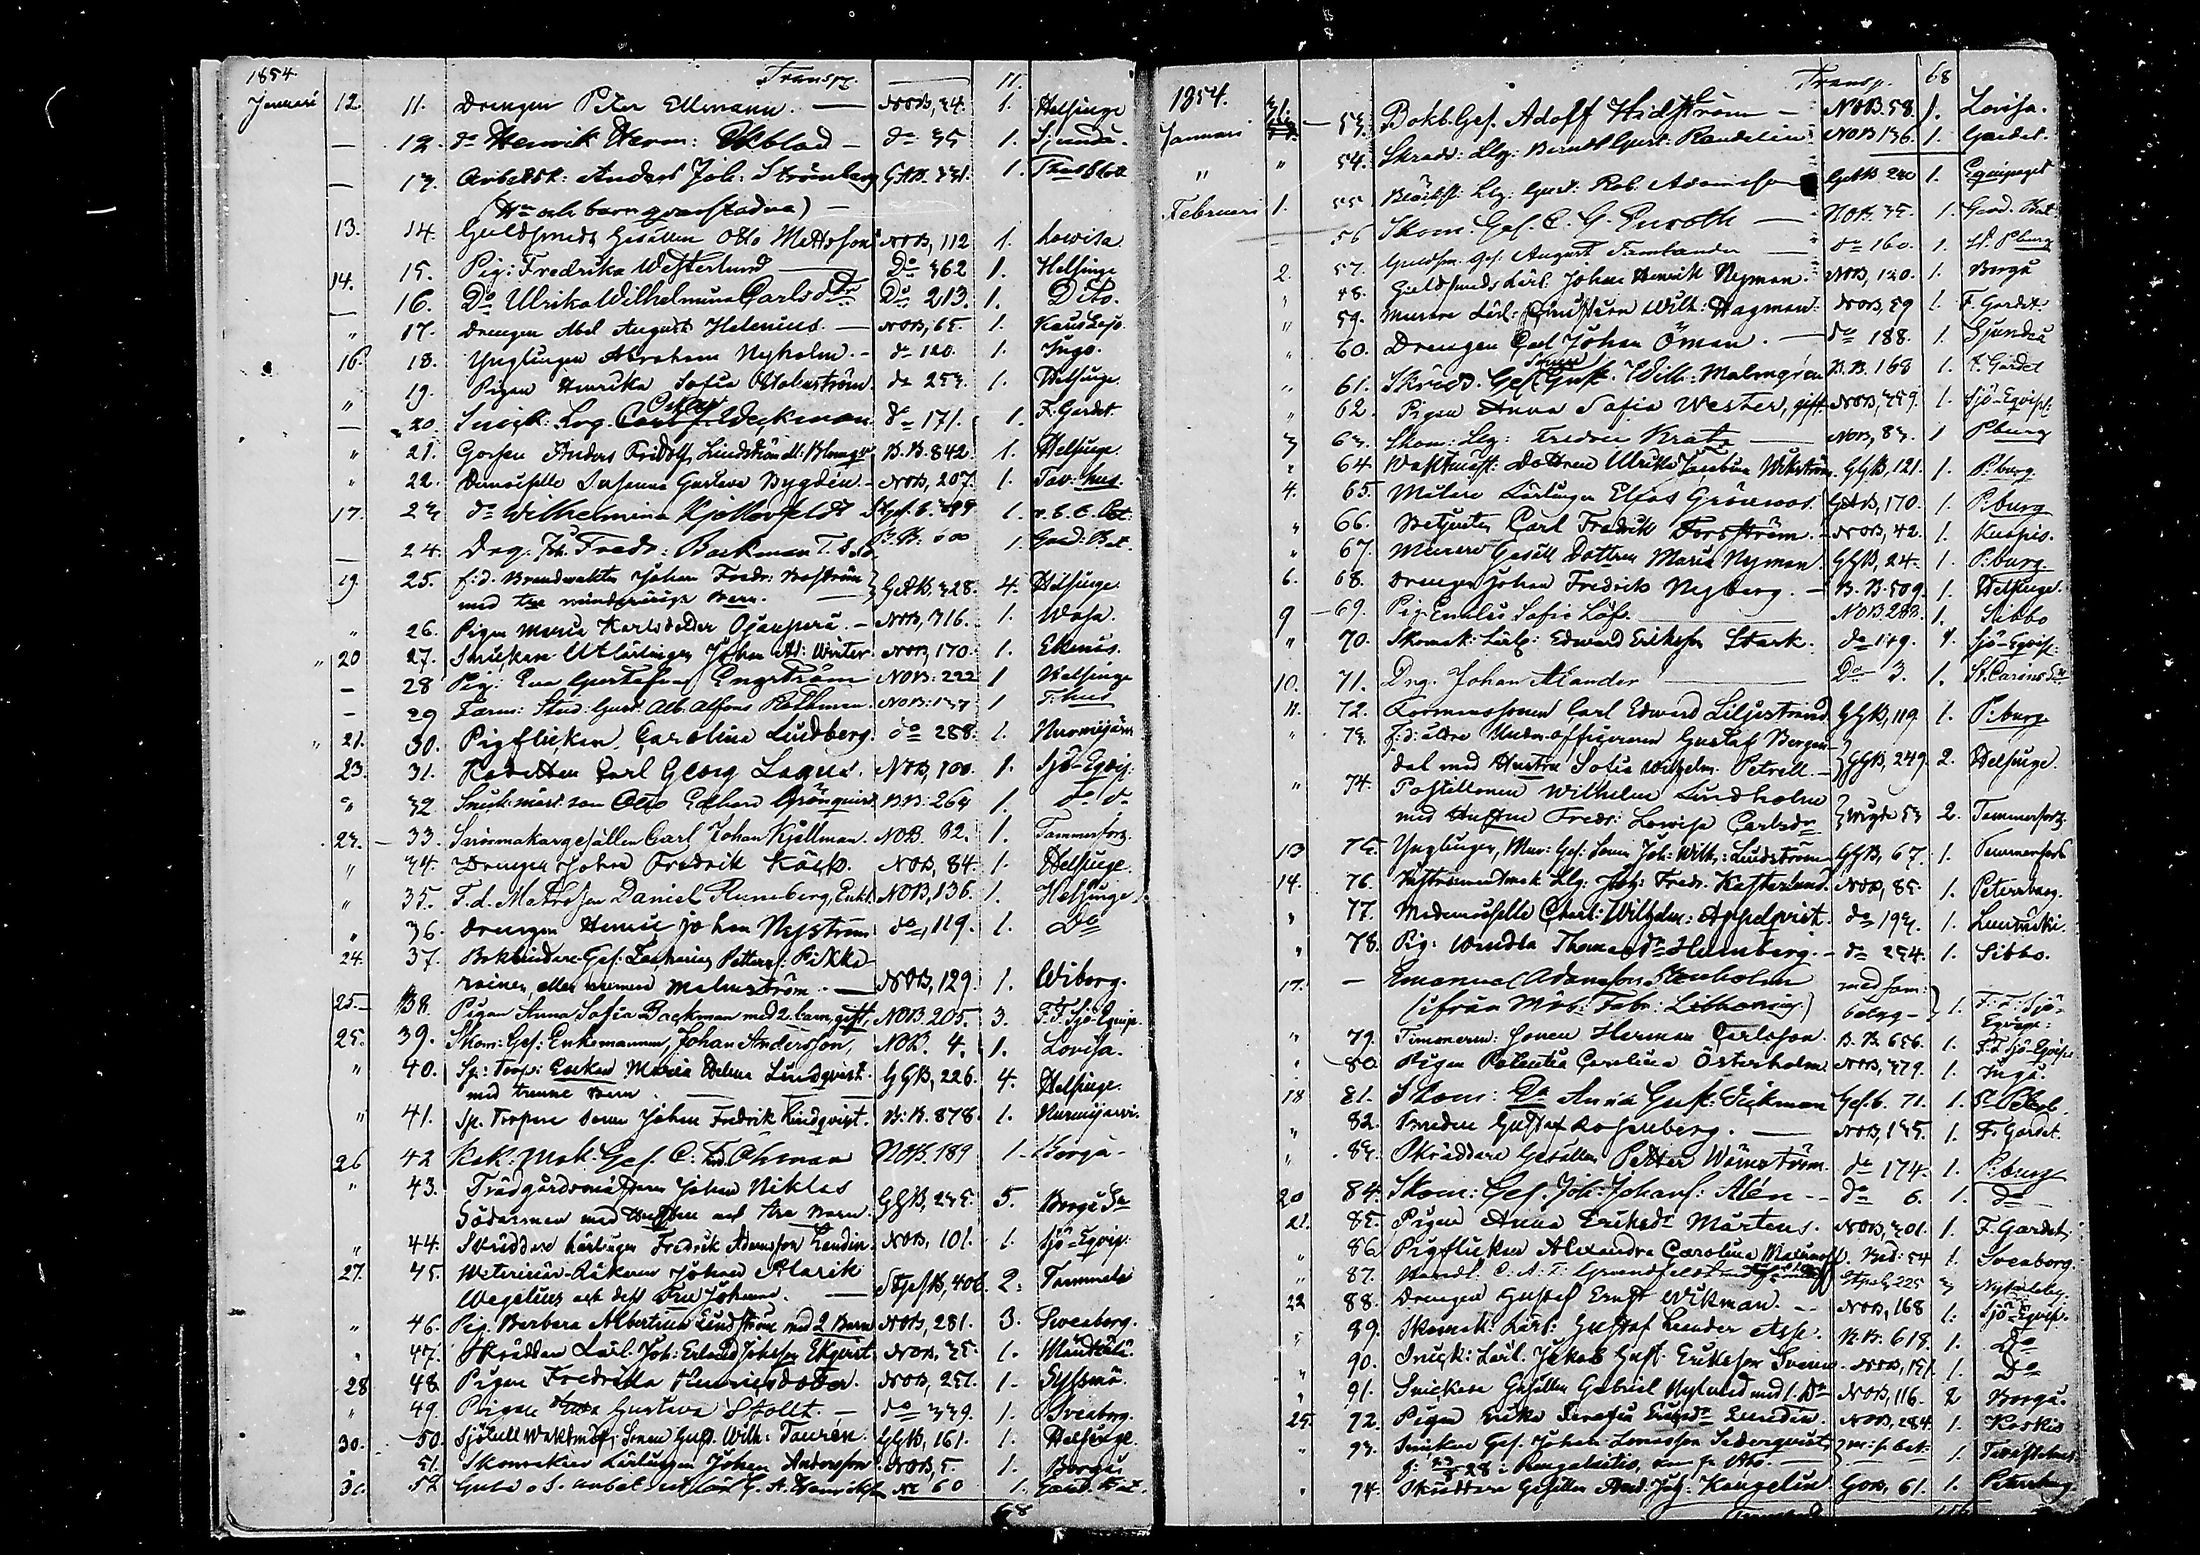 1854. Transp. 11.
Januari 12. 11. Drengen Peter Ellmann. — NOB, 34. 1. Helsinge
— 12. do Henrik Herm: Ekblad — do 35 1. Sjundeå.
— 13. Arbetsk: Anders Joh: Strömberg 1.
(Hu och barn qvarstadna) —
13. 14. Guldsmeds Gesällen Otto Mattsson NOB, 112 1. Lowisa
14. 15. Pig: Fredrika Westerlund Do 362 1. Helsinge
— 16. Do Ulrika Wilhelmina Carlsdr Do 213. 1. Dito.
" 17. Drengen Abel August Helenius. — NOB, 65. 1.
16. 18. Ynglingen Abraham Nyholm. - do 120. 1. Ingo.
" 19. Pigan Henrika Sofia do 253. 1. Helsinge.
— 20. Snick: Lrg. Oskar Weckman do 171. 1. F. Gardet.
" 21. Gossen Anders Fridolf Lindström B.B. 842. 1. Helsinge.
" 22. Demoiselle Susanna Gustava Bygdén. - NOB, 207. 1. Tav:hus.
17. 23. do Wilhelmina 1.
— 24. Drg. Joh. Fredr: Backman B.B: 600 1. Gard: Bat.
19. 25. f:d. Brandvakten Johan Fredr: Boström
med tre minderåriga Barn. — 328. 4. Helsinge.
" 26. Pigan Maria Karlsdotter - NOB, 316. 1. Wasa.
" 20 27. Snickare Utlärlingen Johan Ad: Winter. NOB, 170. 1. Ekenäs.
— 28 Pig: Eva Gustafva Engström NOB: 222 1 Helsinge
— 29 Farm: Stud. Gust. Alb. Alfons NOB: 137 1 T:hus
" 21. 30. Pigflickan Carolina Lindberg. do 288. 1. Nurmijärvi
23. 31. Kadetten Carl Georg Lagus. NOB, 100. 1. Sjö-Eqvip.
" 32 Snick. mäst. son Otto Edvard Grönquist B.B: 264 1. do do
23. — 33. Snörmakaregesällen Carl Johan Kjellman. NOB. 32. 1. Tammerfors.
" 34. Drengen Johan Fredrik Käck. NOB, 84. 1. Helsinge.
" 35. F.d. Matrosen Daniel Runeberg, Enkl. NOB, 136. 1. Helsinge.
" 36. Drengen Henric Johan Nyström do, 119. 1. Do
24. 37. Bokbindare Ges: Zacharias Petterss: Pikka
rainen, eller numera Malmström. — NOB, 129. 1. Wiborg.
25. — 38. Pigan Anna Sofia Backman med 2. barn, gift, NOB. 205. 3. F.F. Sjö-Eqvip.
25. 39. Skom: Ges: Enkemannen, Johan Andersson, NOB. 4. 1. Lovisa.
" 40. Sp: torp: Enkan Maria Helena Lindqvist. GGB, 226. 4. Helsinge.
med trenne Barn
" 41. Sp. Torpare Sonen Johan Fredrik Lindqvist. B:B. 878. 1. Nurmijärvi.
26 42 Kak: mak: Ges. C. Öhman NOB. 189 1 - Borgå -
" 43. Trädgårdsmästaren Johan Niklas
Söderman med Hustru och tre Barn. GGB, 235. 5. Borgå Sn
" 44. Skräddare Lärlingen Fredrik Adamsson Landin. NOB, 101. 1. Sjö-Eqvip.
27. 45. Weterinär-Läkaren Johan Alarik
Wegelius och dess Fru Johanna. — 406. 2. Tammela
" 46. Pig. Barbara Albertina Lindström med 2 Barn NOB, 281. 3. Sveaborg.
" 47. Skräddare Lärl. Joh: Erland Johsson Ekqvist. NOB, 35. 1. Mäntsälä.
28 48 Pigan Fredrika Henriksdotter. NOB, 251. 1. Sysmä.
" 49. Pigan Gustava Stolt. — do 339. 1. Sveaborg.
30. 50. Sjötull Waktmäst: Sonen Gust. Wilh: Taurén. GGB, 161. 1. Helsinge.
51. Skomakare Lärlingen Johan Andersson. NOB, 5. 1. Borgå
31. 52 Guld o S. arbet. 60 1. Gard. Bat.
68
1854. Transp. 68
Januari 31. — 53. Bokb. Ges. Adolf Hidström — NOB. 58. 1. Lovisa.
" 54. Skradd: Llg: Berndt Gust: Randelin. NOB 136. 1. Gardet.
" 55 Gust. Rob. Adamsson 240 1. Equipaget
Februari 1. 56 Skom. Ges. C. G. Enroth — NOB. 35. 1. Gard. Bat
57. Guldsm. Ges. August do 160. 1. St. Pburg
2. 58. Guldsmeds Lärl. Johan Henrik Nyman. NOB, 120. 1. Borgå
" 59. Murare Lärl: Christian Wilh: Hagman. NOB, 59 1. F. Gardet.
" 60. Drengen Carl Johan Öman. — do 188. 1. Sjundeå
" 61. Skrädd. Ges. Sonen Gust. Wilh: Malmgrén B.B. 168 1. F. Gardet
" 62. Pigan Anna Sofia Wester, gift NOB, 359. 1. Sjö-Eqvip:
3 63. Skom: Llg: Fredric Kratz — NOB, 83. 1 Pburg
" 64. Waktmäst: Dottren Ulrika Jacobina Wikström. GGB, 121. 1. P:burg.
4. 65. Målare Lärlingen Elias Grönroos. 170. 1. P:burg
" 66. Betjenten Carl Fredrik Forsström. - NOB, 42. 1. Kuopio.
" 67. Murare Gesäll Dottren Maria Nyman. GGB, 24. 1. P:burg.
6. 68. Drengen Johan Fredrik Nyberg. — B.B. 509. 1. Helsinge.
9 — 69. Pig. Emilia Sofia Löf. NOB. 288. 1. Sibbo
" 70. Skomak: Lärl: Edward Eriksson Stark. do 149. 1. Sjö-Eqvip:
10. 71. Drg. Johan Alander — Do 3. 1. St. Carins Sn
11. 72. Formanssonen Carl Edward Liljestrand GGB, 119. 1. P:burg.
" 73. f:d: äldre Under-officeren Gustaf Bergen-
dal med Hustru Sofia Wilhelm. Petrell. — GGB, 249. 2. Helsinge.
" 74. Postillonen Wilhelm Lindholm
med Hustru Fredr: Lowisa Carlsdr 53 2. Tammerfors.
13 75. Ynglingen, Mur: Ges. Sonen Joh: Wilh: Lindström GGB, 67. 1. Tammerfors
14. 76. Instrumentmak. Llg: Joh: Fredr. NOB, 85. 1. Petersburg.
" 77. Mademoiselle Charl: Wilhelm: Appelqvist. do 193. 1.
" 78. Pig: Wendla Thomasdr Heimberg. — do 254. 1. Sibbo.
17. — Emanuel Adamsson Stenholm med fam:
(ifrån Mob: Fabr: Litthonius.) betyg — 1. F: F: Sjö-
Eqvip:
" 79. Timmerm: Sonen Herman Carlsson. B.B. 656. 1. F.F. Sjö-Eqvip.
" 80. Pigan Carolina Österholm NOB, 379. 1. Ingå.
18 81. Skom: Do Anna Gust: Ges. b. 71. 1.
" 82. Gustaf Rosenberg. — NOB, 135. 1. F. Gardet.
" 83. Skräddare Gesällen Petter Wörnström. do 174. 1. P:burg
20 84. Skom: Ges. Joh: Johans: Alén — do 6. 1. do
21. 85. Pigan Anna Eriksdr Mårtens. NOB, 301. 1. F. Gardet.
" 86. Pigflickan Alexandra Carolina 54 1. Sveaborg.
" 87. Handl: C. A. T. 225 3
22 88. Drengen Gustaf Ernst Wikman. — NOB, 168 1. Sjö-Eqvip.
" 89. Skomak: Lärl: Gustaf Leander Asp. B.B. 618. 1. Do
" 90. Snick: Lärl. Jakob Gust: Eriksson NOB, 151. 1. Do
" 91. Snickare Gesällen Gabriel Nylund med 1. Do NOB, 116. 2 Borgå.
25. 92. Pigan Erika Serafia Lundin. NOB, 284. 1. Karkis
" 93. Snickare Ges. Johan Sederqvist 1. Tavastehus
" 94. Skräddare Gesällen And. Joh: 61. 1. Petersburg.